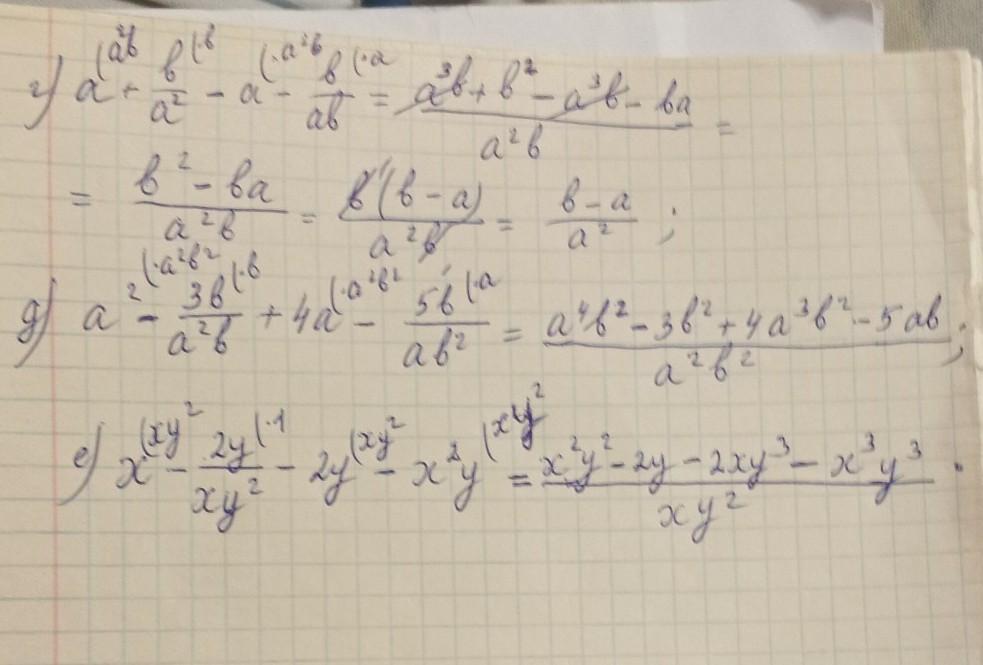 г) a(a²b + b/a²(·b - a(·a²b - b/ab(·a = (a³b + b² - a³b - ba)/(a²b) =
= (b² - ba)/(a²b) = b¹(b - a)/(a²b) = (b - a)/a² ;
д) a²(·a²b² - 3b/(a²b)(·b + 4a(·a²b² - 5b/(ab²)(·a = (a⁴b² - 3b² + 4a³b² - 5ab)/(a²b²) ;
е) x(xy² - 2y/(xy²)(·1 - 2y(xy² - x²y(xy² = (x²y² - 2y - 2xy³ - x³y³)/(xy²) .